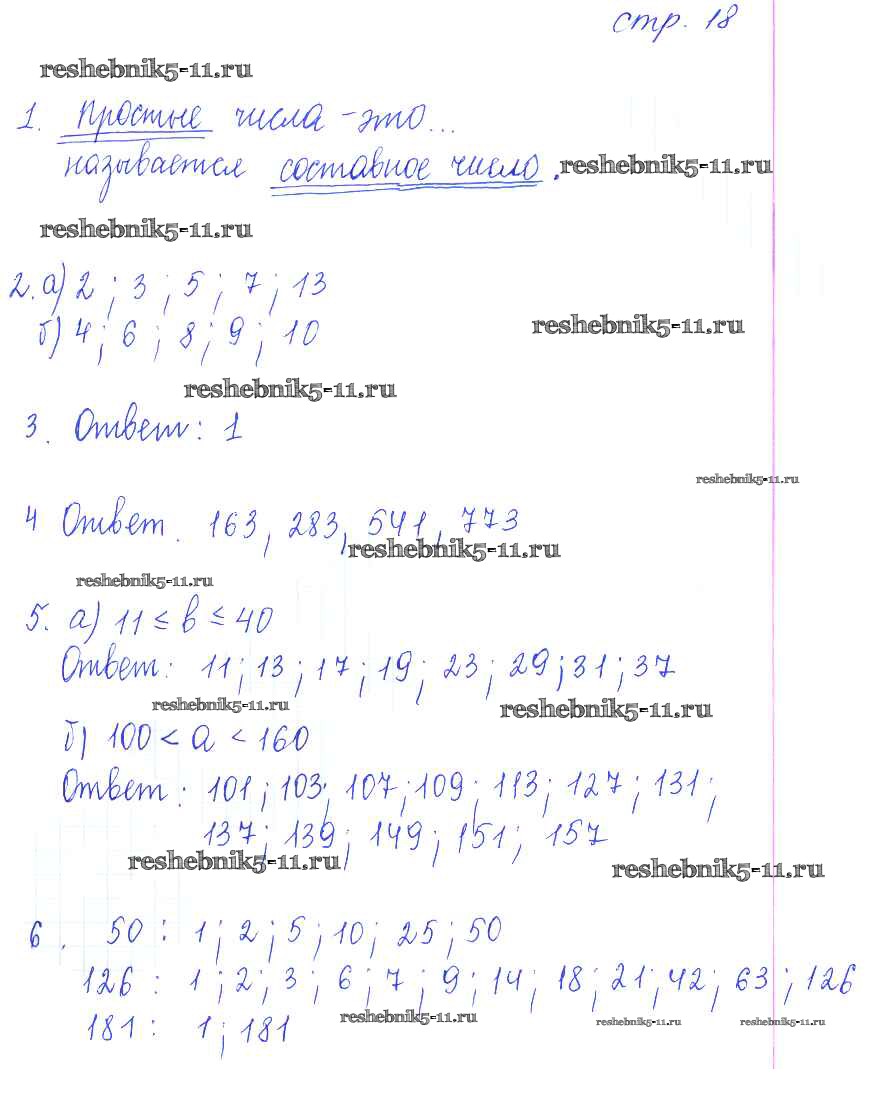 стр. 18
reshebnik5-11.ru
1. Простые числа - это...
называется составное число.
reshebnik5-11.ru
reshebnik5-11.ru
2. а) 2; 3; 5; 7; 13
б) 4; 6; 8; 9; 10
reshebnik5-11.ru
reshebnik5-11.ru
3. Ответ: 1
reshebnik5-11.ru
4 Ответ. 163, 283, 541, 773
reshebnik5-11.ru
reshebnik5-11.ru
5. а) 11 ≤ b ≤ 40
Ответ: 11; 13; 17; 19; 23; 29; 31; 37
reshebnik5-11.ru
reshebnik5-11.ru
б) 100 < a < 160
Ответ: 101; 103; 107; 109; 113; 127; 131;
137; 139; 149; 151; 157
reshebnik5-11.ru
reshebnik5-11.ru
6. 50 : 1; 2; 5; 10; 25; 50
126 : 1; 2; 3; 6; 7; 9; 14; 18; 21; 42; 63; 126
181 : 1; 181
reshebnik5-11.ru
reshebnik5-11.ru
reshebnik5-11.ru